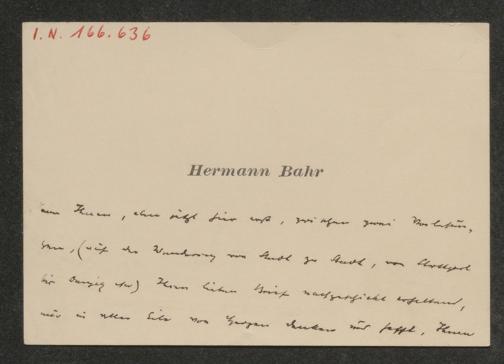 I.N. 166.636
Hermann Bahr
Ihnen, aber jetzt hier erst, zwischen zwei Vorlesun-
gen, (auf der Wanderung von Stadt zu Stadt, von Stuttgart
bis Danzig) Ihren lieben Brief nachgeschickt erhaltend,
nur in aller Eile von Herzen danken und hofft, Ihnen